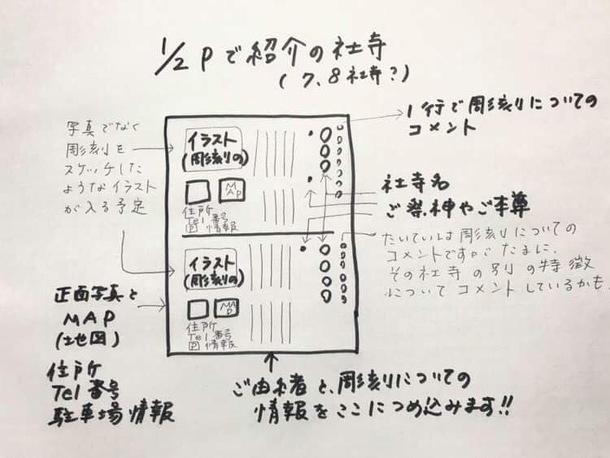 1/2 Pで紹介の社寺
(7、8社寺?)
写真でなく
彫刻を
スケッチした
ようなイラスト
が入る予定
1行で彫刻についての
コメント
社寺名
ご祭神やご本尊
たいていは彫刻についての
コメントですが、たまに、
その社寺の別の特徴
についてコメントしているかも
イラスト
(彫刻の)
MAP
住所
Tel番号
P情報
イラスト
(彫刻の)
MAP
住所
Tel番号
P情報
正面写真と
MAP
(地図)
住所
Tel番号
駐車場情報
ご由緒と、彫刻についての
情報をここにつめ込みます!!